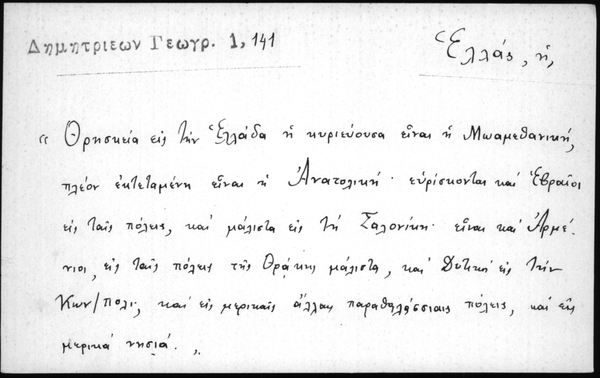 Δημητριεων Γεωγρ. 1, 141
Ἑλλάς, ἡ,
« Θρησκεία εἰς τὴν Ἑλλάδα ἡ κυριεύουσα εἶναι ἡ Μωαμεθανική,
πλέον ἐκτεταμένη εἶναι ἡ Ἀνατολική· εὑρίσκονται καὶ Ἑβραῖοι
εἰς ταῖς πόλεις, καὶ μάλιστα εἰς τὴ Σαλονίκη· εἶναι καὶ Ἀρμέ-
νιοι, εἰς ταῖς πόλεις τῆς Θράκης μάλιστα, καὶ Δυτικοὶ εἰς τὴν
Κων/πολι, καὶ εἰς μερικαῖς ἄλλαις παραθαλάσσιαις πόλεις, καὶ εἰς
μερικὰ νησιά. »